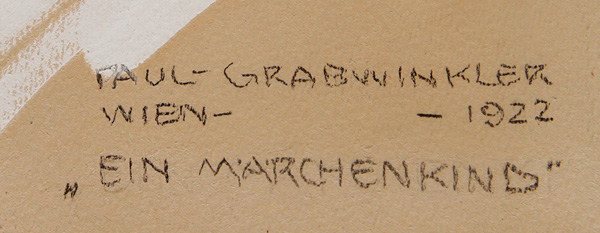 PAUL-GRABWINKLER
WIEN- - 1922
„EIN MÄRCHENKIND"